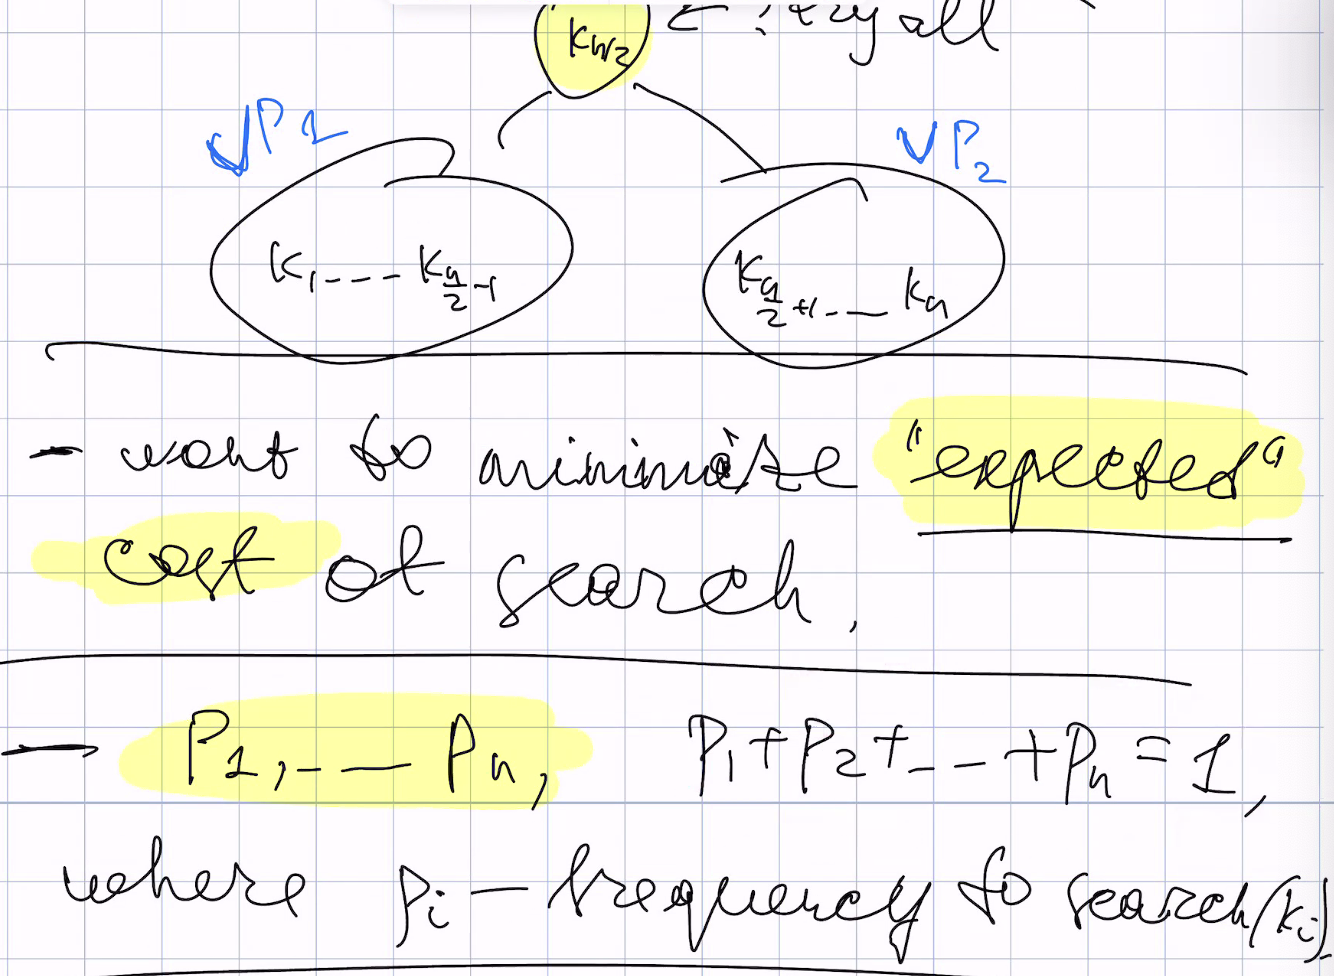 K n/2 ← ? try all
√P1 √P2
K1 --- K n/2 -1 K n/2 +1 --- Kn
- want to minimize "expected"
cost of search.
- P1, --- Pn, P1+P2+--- +Pn = 1,
where Pi - frequency to search(Ki)